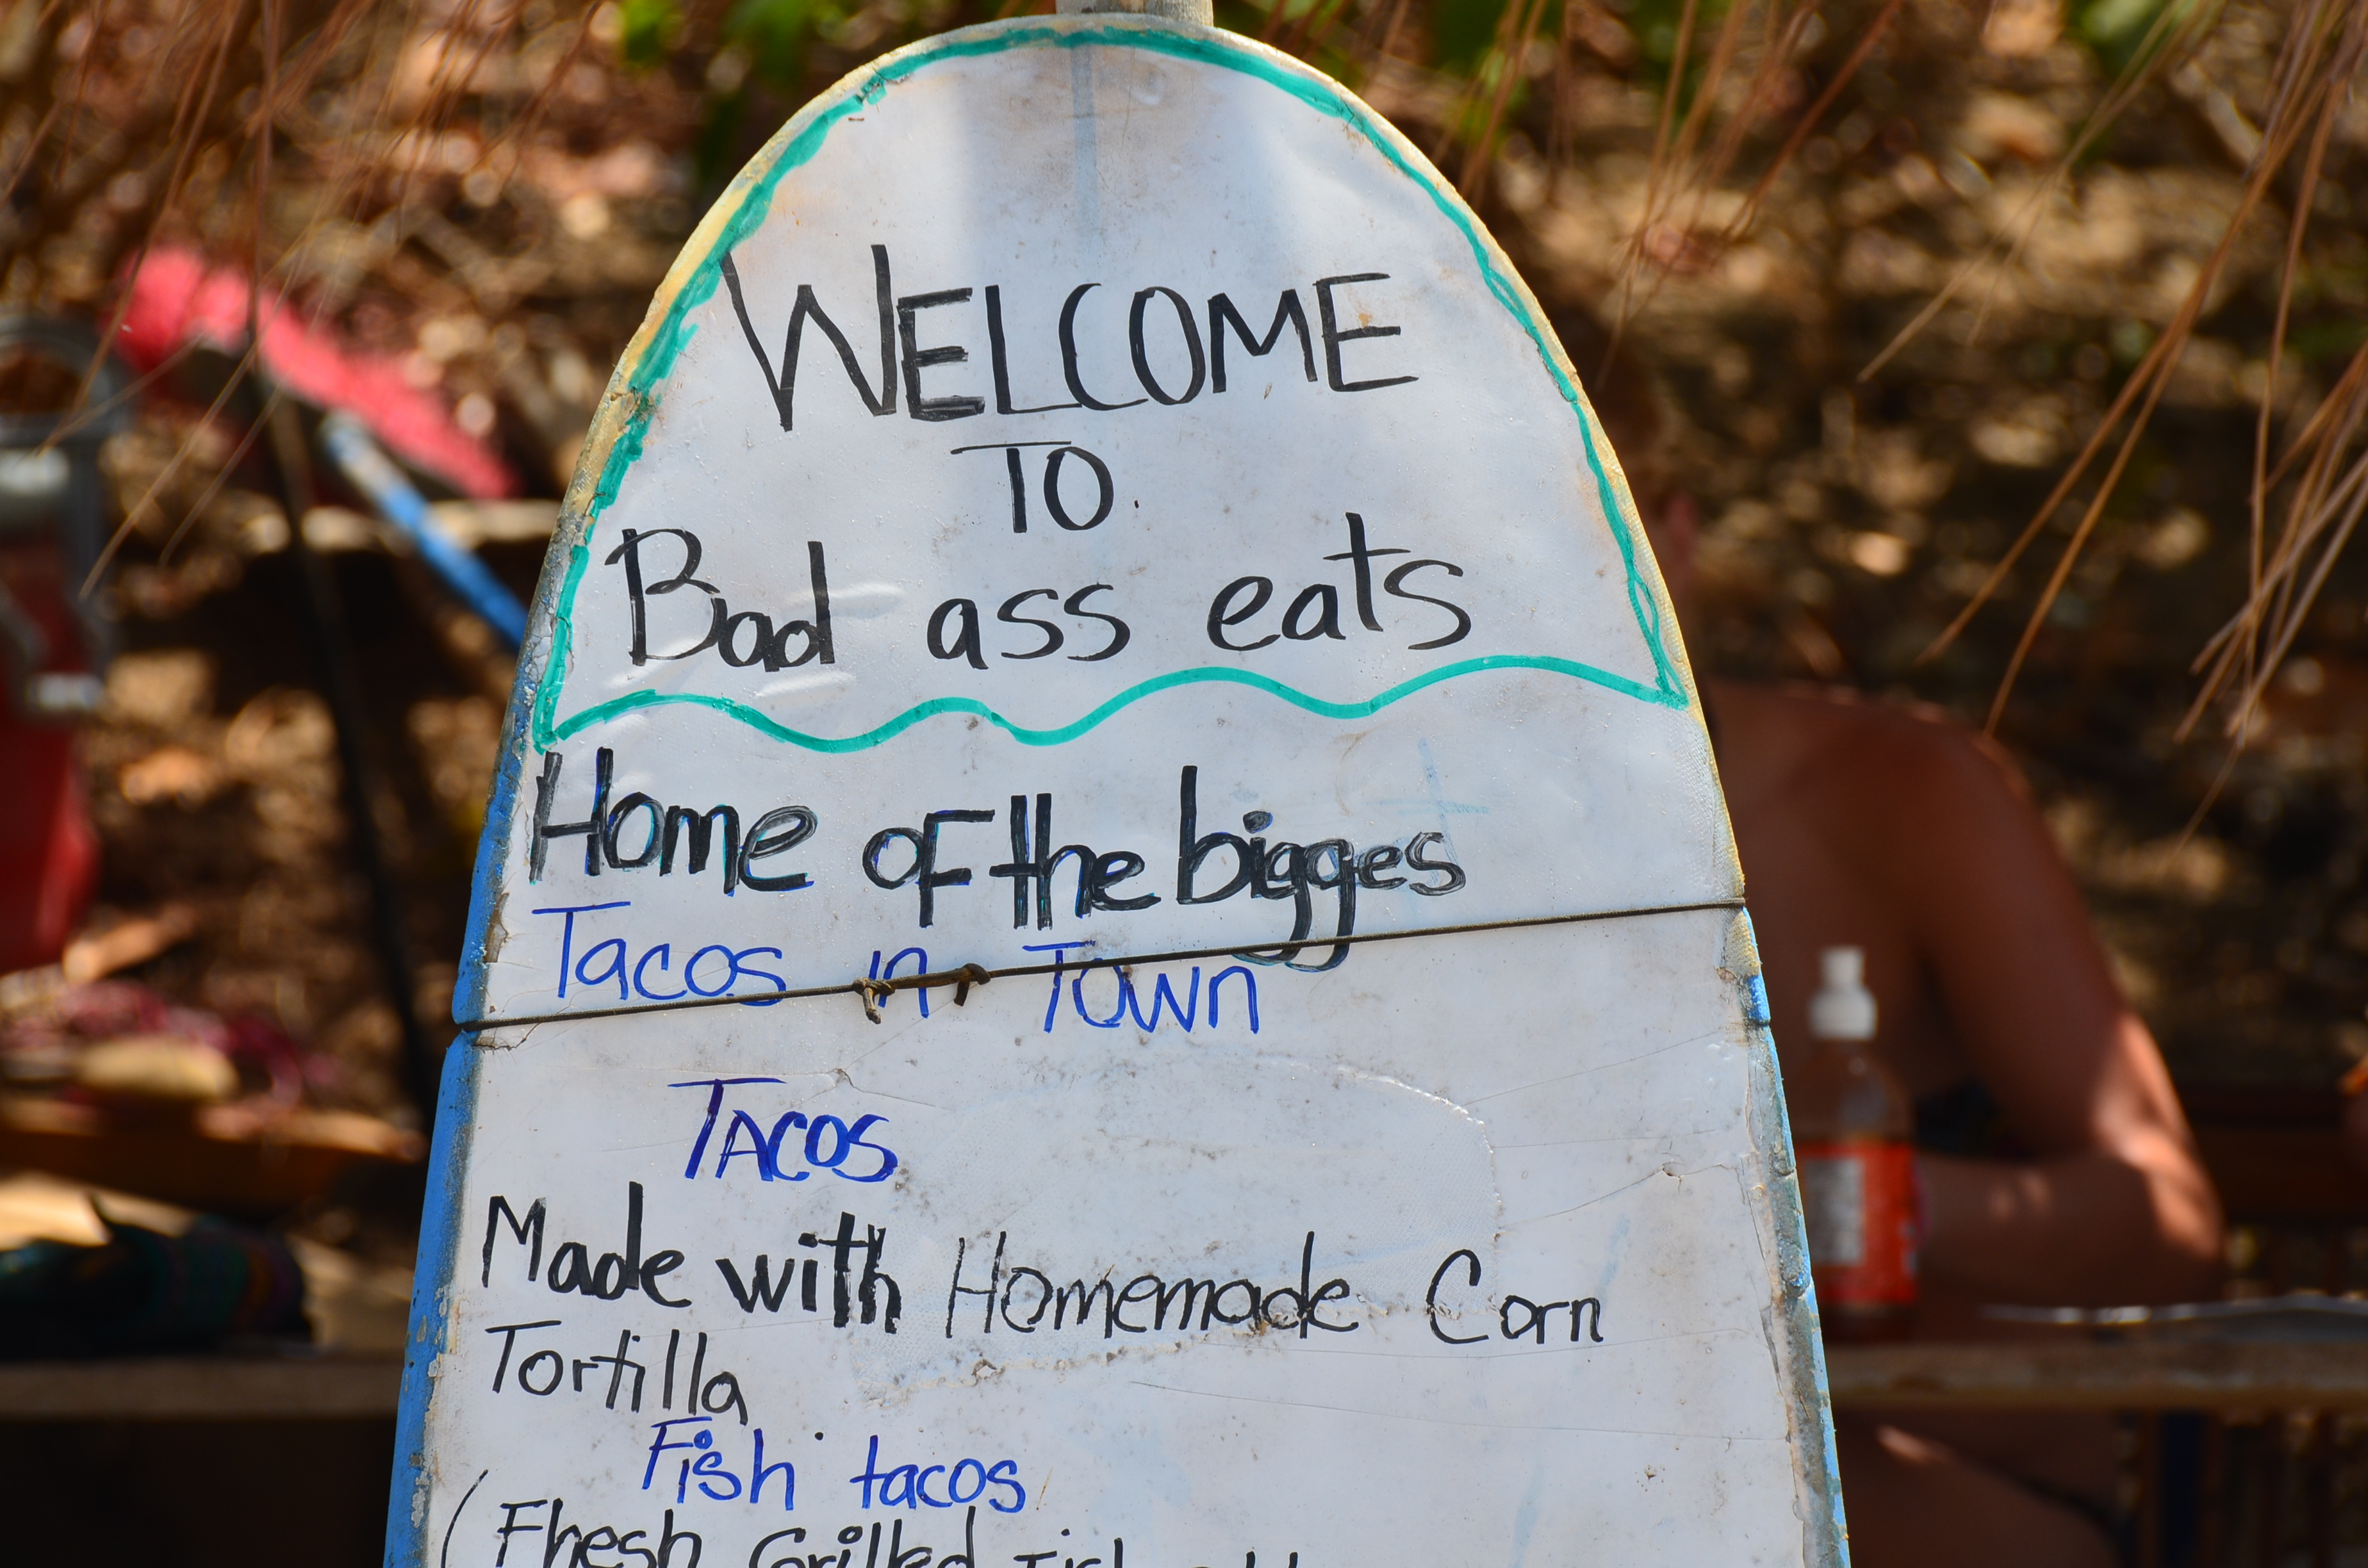 WELCOME
TO
Bad ass eats
Home oF the bigges
Tacos in Town
TACOS
Made with Homemade Corn
Tortilla
Fish tacos
(Fhesh Grilled